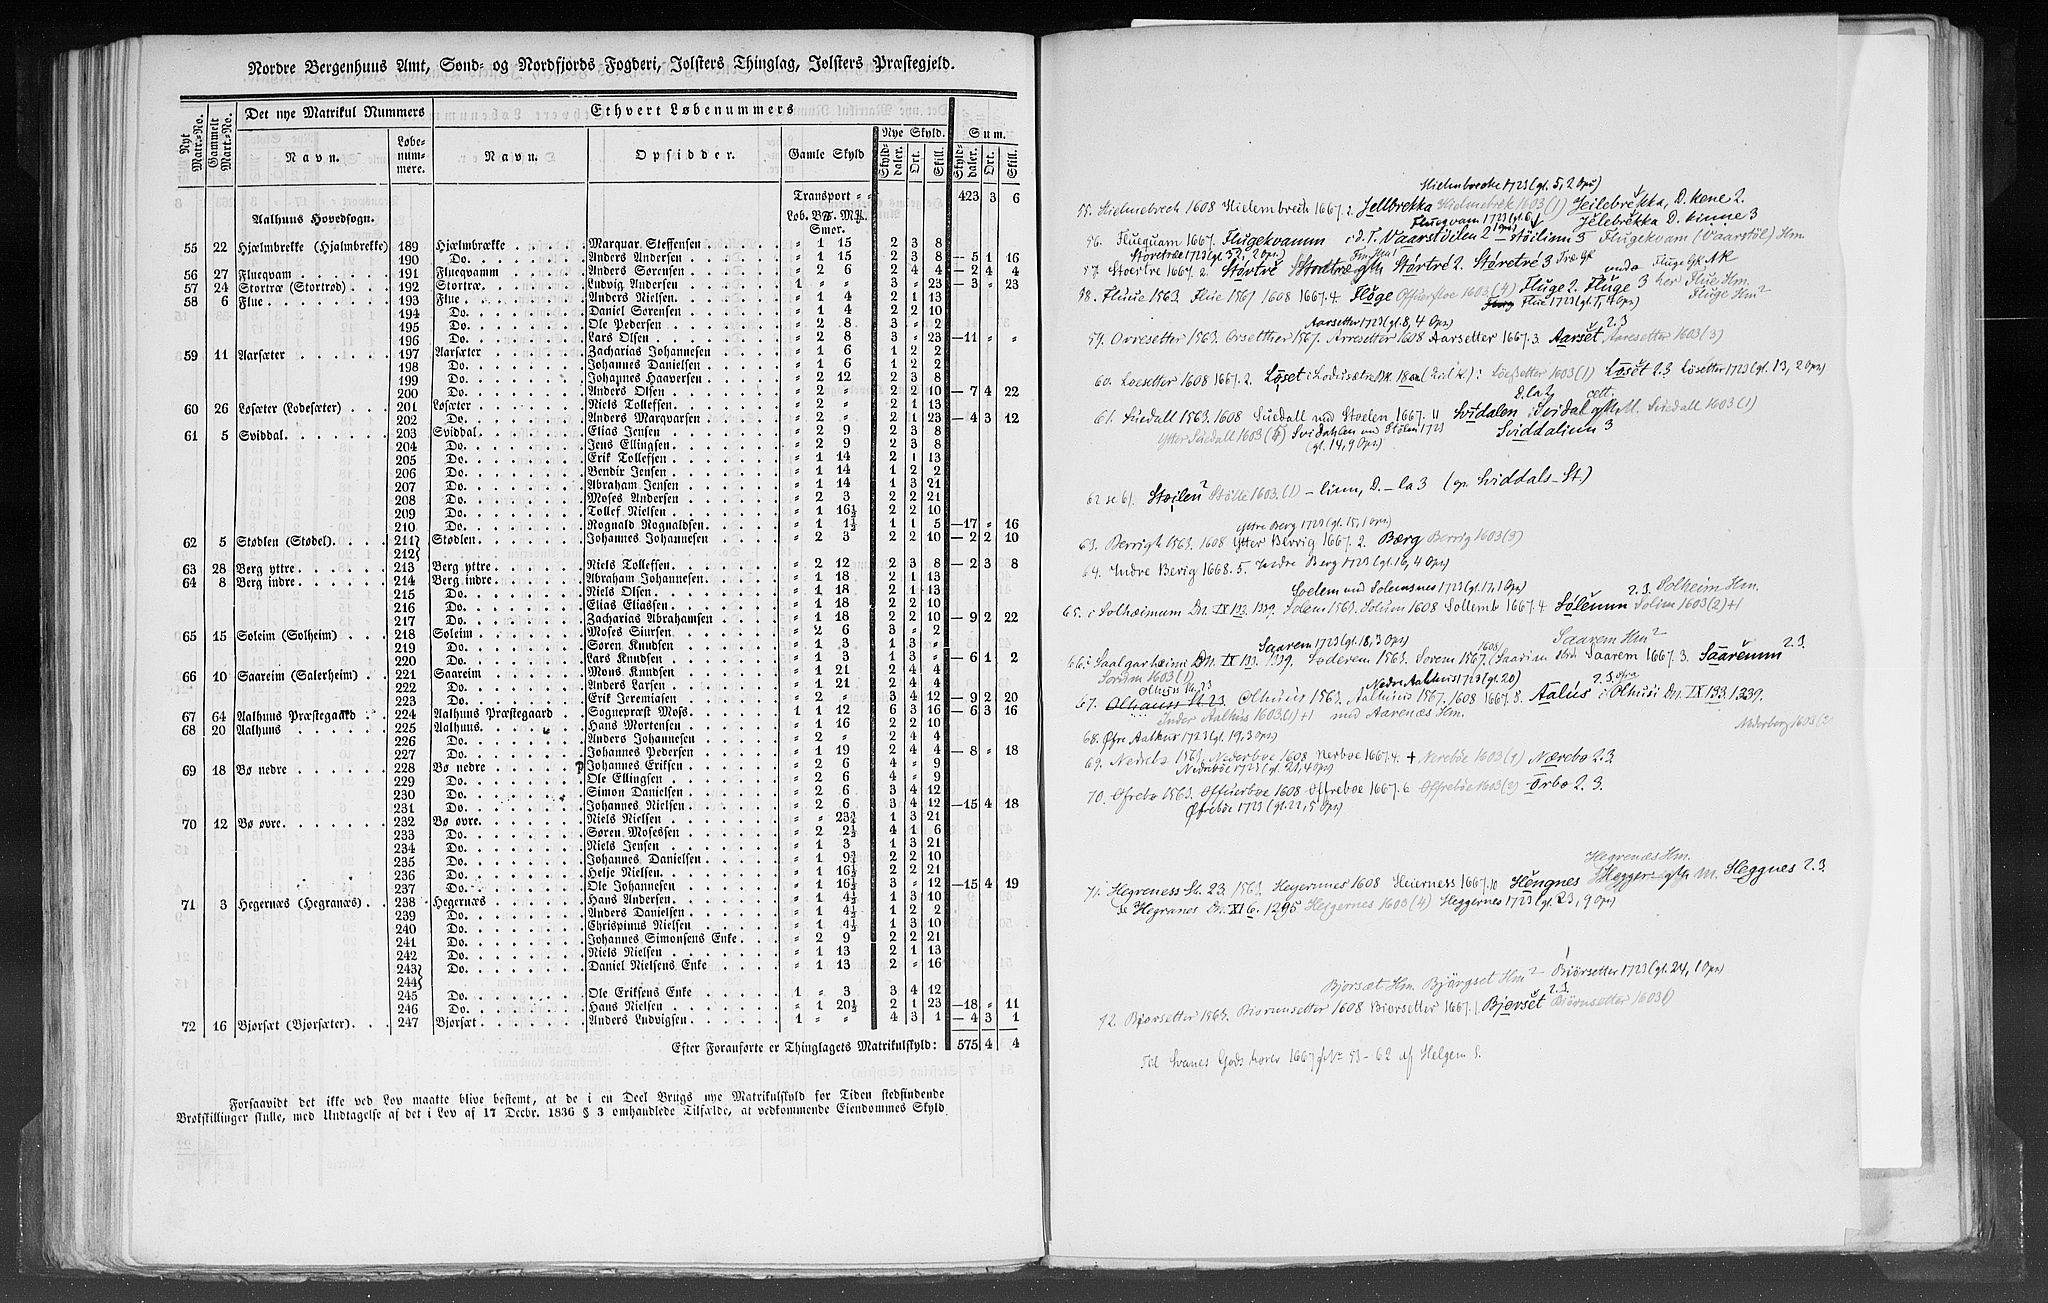 Nordre Bergenhuus Amt, Sønd- og Nordfjords Fogderi, Jolsters Thinglag, Jolsters Præstegjeld.
Nyt Matr.-No. Gammelt Mart.-No. Det nye Matrikul Nummers Ethvert Løbenummers
Nye Skyld. Sum.
Navn. Løbe-num-mere. Navn. Opsidder. Gamle Skyld Skyld-daler. Ort. Skill. Skyld-daler. Ort. Skill.
Transport = = 423 3 6
Aalhuus Hovedsogn. Løb. B℔. Mk.
Smør.
55 22 Hjælmbrekke (Hjalmbrekke) 189 Hjælmbrække Marqvar. Steffensen = 1 15 2 3 8
190 Do. Anders Andersen = 1 15 2 3 8 — 5 1 16
56 27 Flueqvam 191 Flueqvamm Anders Sørensen = 2 6 2 4 4 — 2 4 4
57 24 Stortræ (Stortrød) 192 Stortræ Ludvig Andersen 1 = = 3 = 23 — 3 = 23
58 6 Flue 193 Flue Anders Nielsen = 1 4 2 1 13
194 Do. Daniel Sørensen = 1 4 2 2 10
195 Do. Ole Pedersen = 2 8 3 = 2
196 Do. Lars Olsen = 2 8 3 = 23 — 11 = =
59 11 Aarsæter 197 Aarsæter Zacharias Johannesen = 1 6 1 2 2
198 Do. Johannes Danielsen = 1 6 1 2 2
199 Do. Johannes Haaversen = 2 12 2 3 8
200 Do. Anders Olsen = 2 = 2 2 10 — 7 4 22
60 26 Løsæter (Lodesæter) 201 Løsæter Niels Tollefsen = 2 = 2 1 13
202 Do. Anders Marqvarsen = 2 = 2 1 23 — 4 3 12
61 5 Sviddal 203 Sviddal Elias Jensen = 2 9 2 3 8
204 Do. Jens Ellingsen = 2 9 2 3 8
205 Do. Erik Tollefsen = 1 14 2 1 13
206 Do. Bendix Jensen = 1 14 1 2 2
207 Do. Abraham Jensen = 1 14 1 3 21
208 Do. Moses Andersen = 2 3 2 2 21
209 Do. Tollef Nielsen = 1 16½ 2 2 10
210 Do. Rognald Rognaldsen = 1 1½ 1 1 5 — 17 = 16
62 5 Stødlen (Stødel) 211 Stødlen Johannes Johannesen = 2 3 2 2 10 — 2 2 10
212
63 28 Berg yttre 213 Berg yttre Niels Tollefsen = 2 12 2 3 8 — 2 3 8
64 8 Berg indre 214 Berg indre Abraham Johannesen = 1 18 2 1 13
215 Do. Niels Olsen = 1 18 2 1 13
216 Do. Elias Eliassen = 1 18 2 2 10
217 Do. Zacharias Abrahamsen = 1 18 2 2 10 — 9 2 22
65 15 Soleim (Solheim) 218 Soleim Moses Siursen = 2 6 3 = 2
219 Do. Søren Knudsen = 1 3 1 3 =
220 Do. Lars Knudsen = 1 3 1 3 = — 6 1 2
66 10 Saareim (Salerheim) 221 Saareim Mons Knudsen = 1 21 2 4 4
222 Do. Anders Larsen = 1 21 2 4 4
223 Do. Erik Jeremiasen = 2 = 3 4 12 — 9 2 20
67 64 Aalhuus Præstegaard 224 Aalhuus Præstegaard Sognepræst Moss 1 1 12 6 3 16 — 6 3 16
68 20 Aalhuus 225 Aalhuus Hans Mortensen = 1 16 2 2 10
226 Do. Anders Johannesen = 2 = 2 4 4
227 Do. Johannes Pedersen = 1 19 2 4 4 — 8 = 18
69 18 Bø nedre 228 Bø nedre Johannes Eriksen = 2 6 4 = 9
229 Do. Ole Ellingsen = 2 6 4 = 9
230 Do. Simon Danielsen = 2 6 3 4 12
231 Do. Johannes Nielsen = 2 6 3 4 12 — 15 4 18
70 12 Bø øvre 232 Bø øvre Niels Nielsen = = 23¾ 1 3 21
233 Do. Søren Mosessen = 2 2½ 4 1 6
234 Do. Niels Jensen = 1 3 1 3 21
235 Do. Johannes Danielsen = 1 9¾ 2 2 10
236 Do. Helje Nielsen = 1 16½ 2 2 21
237 Do. Ole Johannesen = 1 16½ 3 = 12 — 15 4 19
71 3 Hegernæs (Hegranæs) 238 Hegernæs Hans Andersen = 1 4½ 1 3 10
239 Do. Anders Danielsen = 1 4½ 1 2 2
240 Do. Chrispinus Nielsen = 1 4½ 1 3 10
241 Do. Johannes Simonsens Enke = 2 9 2 2 21
242 Do. Niels Nielsen = 1 13 2 1 13
243 Do. Daniel Nielsens Enke = 1 13 2 = 16
244
245 Do. Ole Eriksens Enke 1 = 3 3 4 12
246 Do. Hans Nielsen = 1 20½ 2 1 23 — 18 = 11
72 16 Bjorsæt (Bjorsæter) 247 Bjorsæt Anders Ludvigsen 1 = = 4 3 1 — 4 3 1
Efter Foranførte er Thinglagets Matrikulskyld: 575 4 4
Forsaavidt det ikke ved Lov maatte blive bestemt, at de i en Deel Brugs nye Matrikulskyld for Tiden stedfindende
Brøkskillinger skulle, med Undtagelse af det i Lov af 17 Decbr. 1836 § 3 omhandlede Tilfælde, at vedkommende Eiendommes Skyld
Hielmbrecke 1723 (gl. 5, 2 Ops)
55. Hielmebrech 1608 Hielembrech 1667. 2. Jellbrekka Hielmebrek 1603 (1) Jeilebrekka, D. kene 2.
Flueqvam 1723 (gl. 6 Jelebrekka D. kinne 3
56. Fluequam 1667. Flugekvamm i d. T. Vaarstöilen 2 – stöilinn 3 Flugekvam (Vaarstöl) Hm.
Støretræ 1723 (gl. 2 Ops)
57. Stoertre 1667. 2. Störtre Störtré 2. Störetré 3
58. Fluue 1563. Flue 1567 1608 1667. 4 Flöge 1603 (4) Fluge 2. Fluge 3 her Flue Hm.
Flue 1723 (gl. 7, 4 Ops) Fluge Hm²
Aarsetter 1723 (gl. 8, 4 Ops) 2. 3
59. Ovresetter 1563. Orsetther 1567. Arresetter 1608 Aarsetter 1667. 3. Aarset Aaresetter 1603 (3)
60. Loesetter 1608 1667. 2. Löset Loesetter 1603 (1) Löset 2. 3 Løsetter 1723 (gl. 13, 2 Ops)
61. Suedall 1563. 1608 Suedall und Stoelen 1667. 11 Svidalen Svidal Suedall 1603 (1)
Ytter Suedall 1603 Svidahlen und Stølen 1723 Sviddalinn 3
(gl. 14, 9 Ops)
62 se 61. Støilen² Støile 1603. (1) – linn, D. – la 3 (gp. Sviddals-St.)
Yttre Berg 1723 (gl. 15, 1 Ops)
63. Berrigh 1563. 1608 Ytter Berrig 1667. 2. Bærg Berrig 1603 (3)
64. Indre Berig 1668. 5. Indre Berg 1723 (gl. 16, 4 Ops)
Soelem und Solemsnes 1723 (gl. 17, 1 Ops) 2. 3. Solheim Hm.
65. i Solhæimum Dn. IX 133. 1339. Solem 1563. Solium 1608 Sollemb 1667. 4 Söleumm Soliem 1603 (2) + 1
Saarem 1723 (gl. 18, 3 Ops) Saarem Hm²
66. i Saalgarhæimi Dn. IX 133. 1339. Soderem 1563. Sorem 1567. Saarem 1667. 3. Saareumm 2. 3.
Sorum 1603 (1)
Nedre Aalhus 1723 (gl. 20) 2. 3
67. Olhuuss 1563. Aalhuus 1567. 1608 1667. 8. Aalus i Olhusi Dn. IX 133. 1339.
Inder Aalhus 1603 (1) + 1 med Aarenæs Hm. Nederberg 1603 (2)
68. Øfre Aalhus 1723 (gl. 19, 3 Ops)
69. Nedrebø 1563. Nederboe 1608 Nerboe 1667. 4. + Nereböe 1603 (4) Nærebø 2. 3.
Nedreböe 1723 (gl. 21, 4 Ops)
70. Øfrebø 1563. Offuerboe 1608 Offreboe 1667. 6 Offreböe 1603 (2) Örbø 2. 3.
Øfreböe 1723 (gl. 22, 5 Ops)
Hegrenæs Hm.
71. Hegreness St. 23. 1563. Heyernnes 1608 Heierness 1667. 10 Hengnes Heggnes 2. 3
Hegranes Dn. XI 6. 1295 Heggernes 1603 (4) Heggernes 1723 (gl. 23, 9 Ops)
Bjorsæt Hm. Bjärgset Hm² Biørsetter 1723 (gl. 24, 1 Ops)
72. Biorsetter 1563. Biornnsetter 1608 Biorsetter 1667. 1 Bjørset 2. 3. Biørnsetter 1603 (1)
Til Svanes Gods hører 1667 gNo 53–62 af Helgem S.